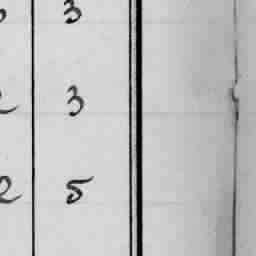 3
2 3
2 5